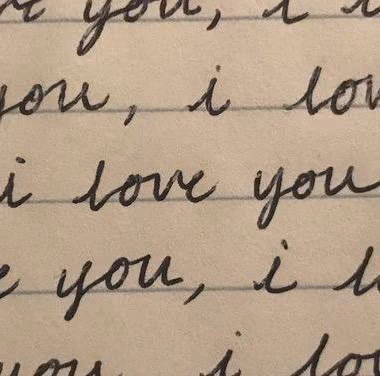 ve you, i
you, i lov
i love you
e you, i l
you, i lov